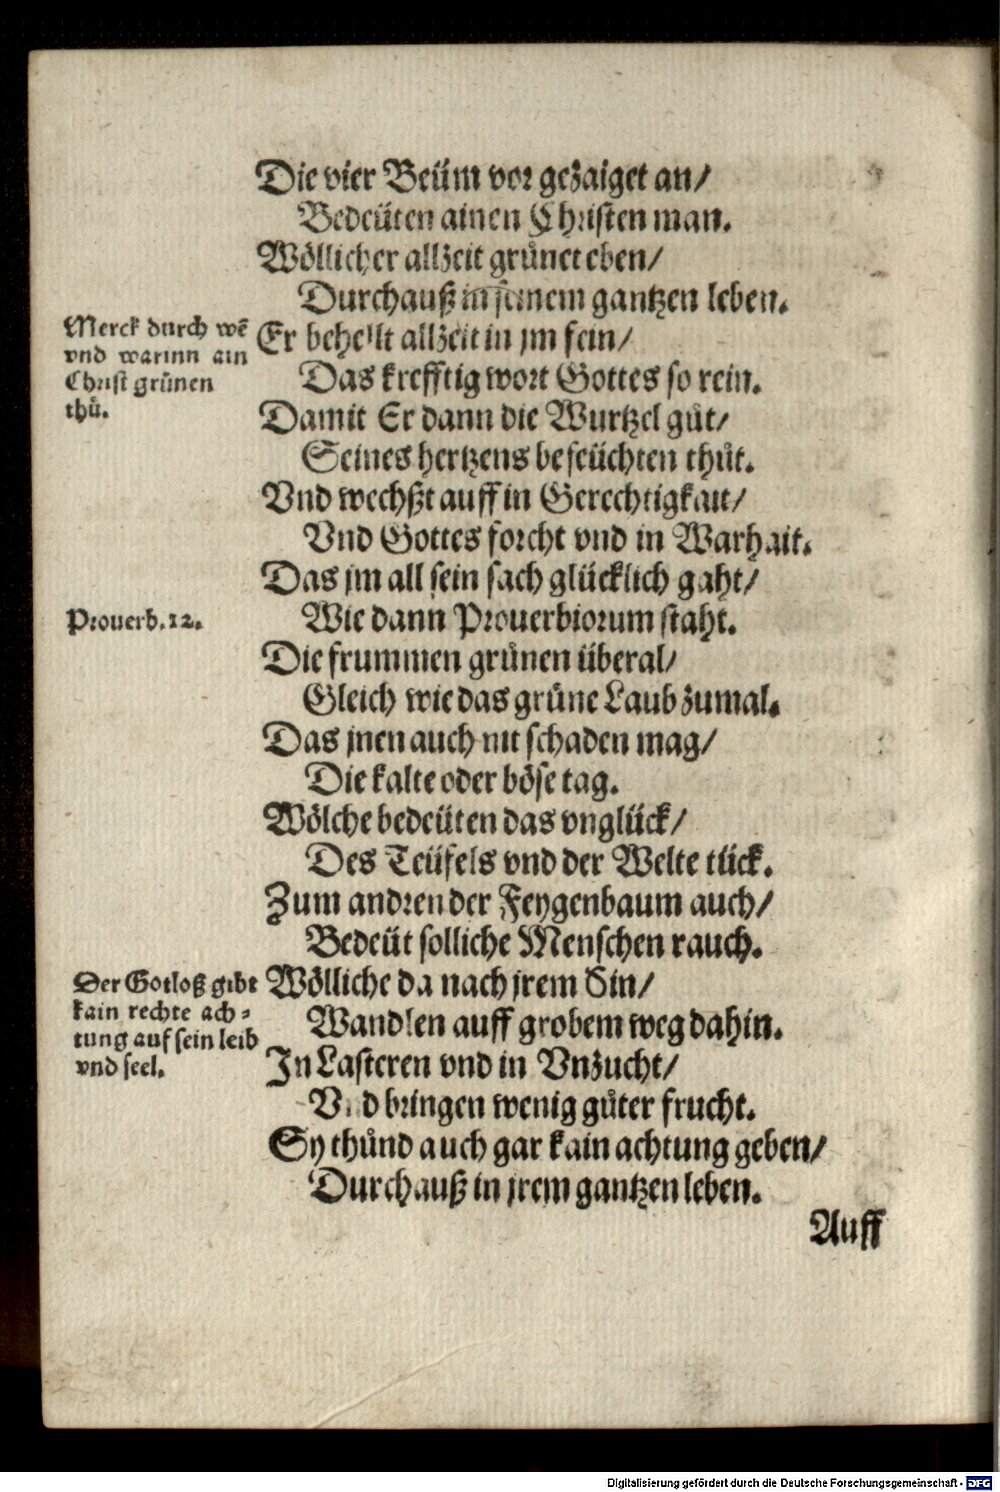 Die vier Beüm vor gezaiget an/
Bedeüten ainen Christen man.
Wöllicher allzeit grůnet eben/
Durchauß in seinem gantzen leben.
Merck durch wē
vnd warinn ain
Christ grůnen
thů.
Er behellt allzeit in jm fein/
Das krefftig wort Gottes so rein.
Damit Er dann die Wurtzel gůt/
Seines hertzens befeüchten thůt.
Vnd wechßt auff in Gerechtigkait/
Vnd Gottes forcht vnd in Warhait.
Das jm all sein sach glücklich gaht/
Prouerb. 12.
Wie dann Prouerbiorum staht.
Die frummen grůnen überal/
Gleich wie das grůne Laub zumal.
Das jnen auch nit schaden mag/
Die kalte oder böse tag.
Wölche bedeüten das vnglück/
Des Teüfels vnd der Welte tück.
Zum andren der Feygenbaum auch/
Bedeüt solliche Menschen rauch.
Der Gotloß gibt
kain rechte ach⸗
tung auf sein leib
vnd seel.
Wölliche da nach jrem Sin/
Wandlen auff grobem weg dahin.
In Lasteren vnd in Vnzucht/
Vnd bringen wenig gůter frucht.
Sy thůnd auch gar kain achtung geben/
Durchauß in jrem gantzen leben.
Auff
Digitalisierung gefördert durch die Deutsche Forschungsgemeinschaft - DFG